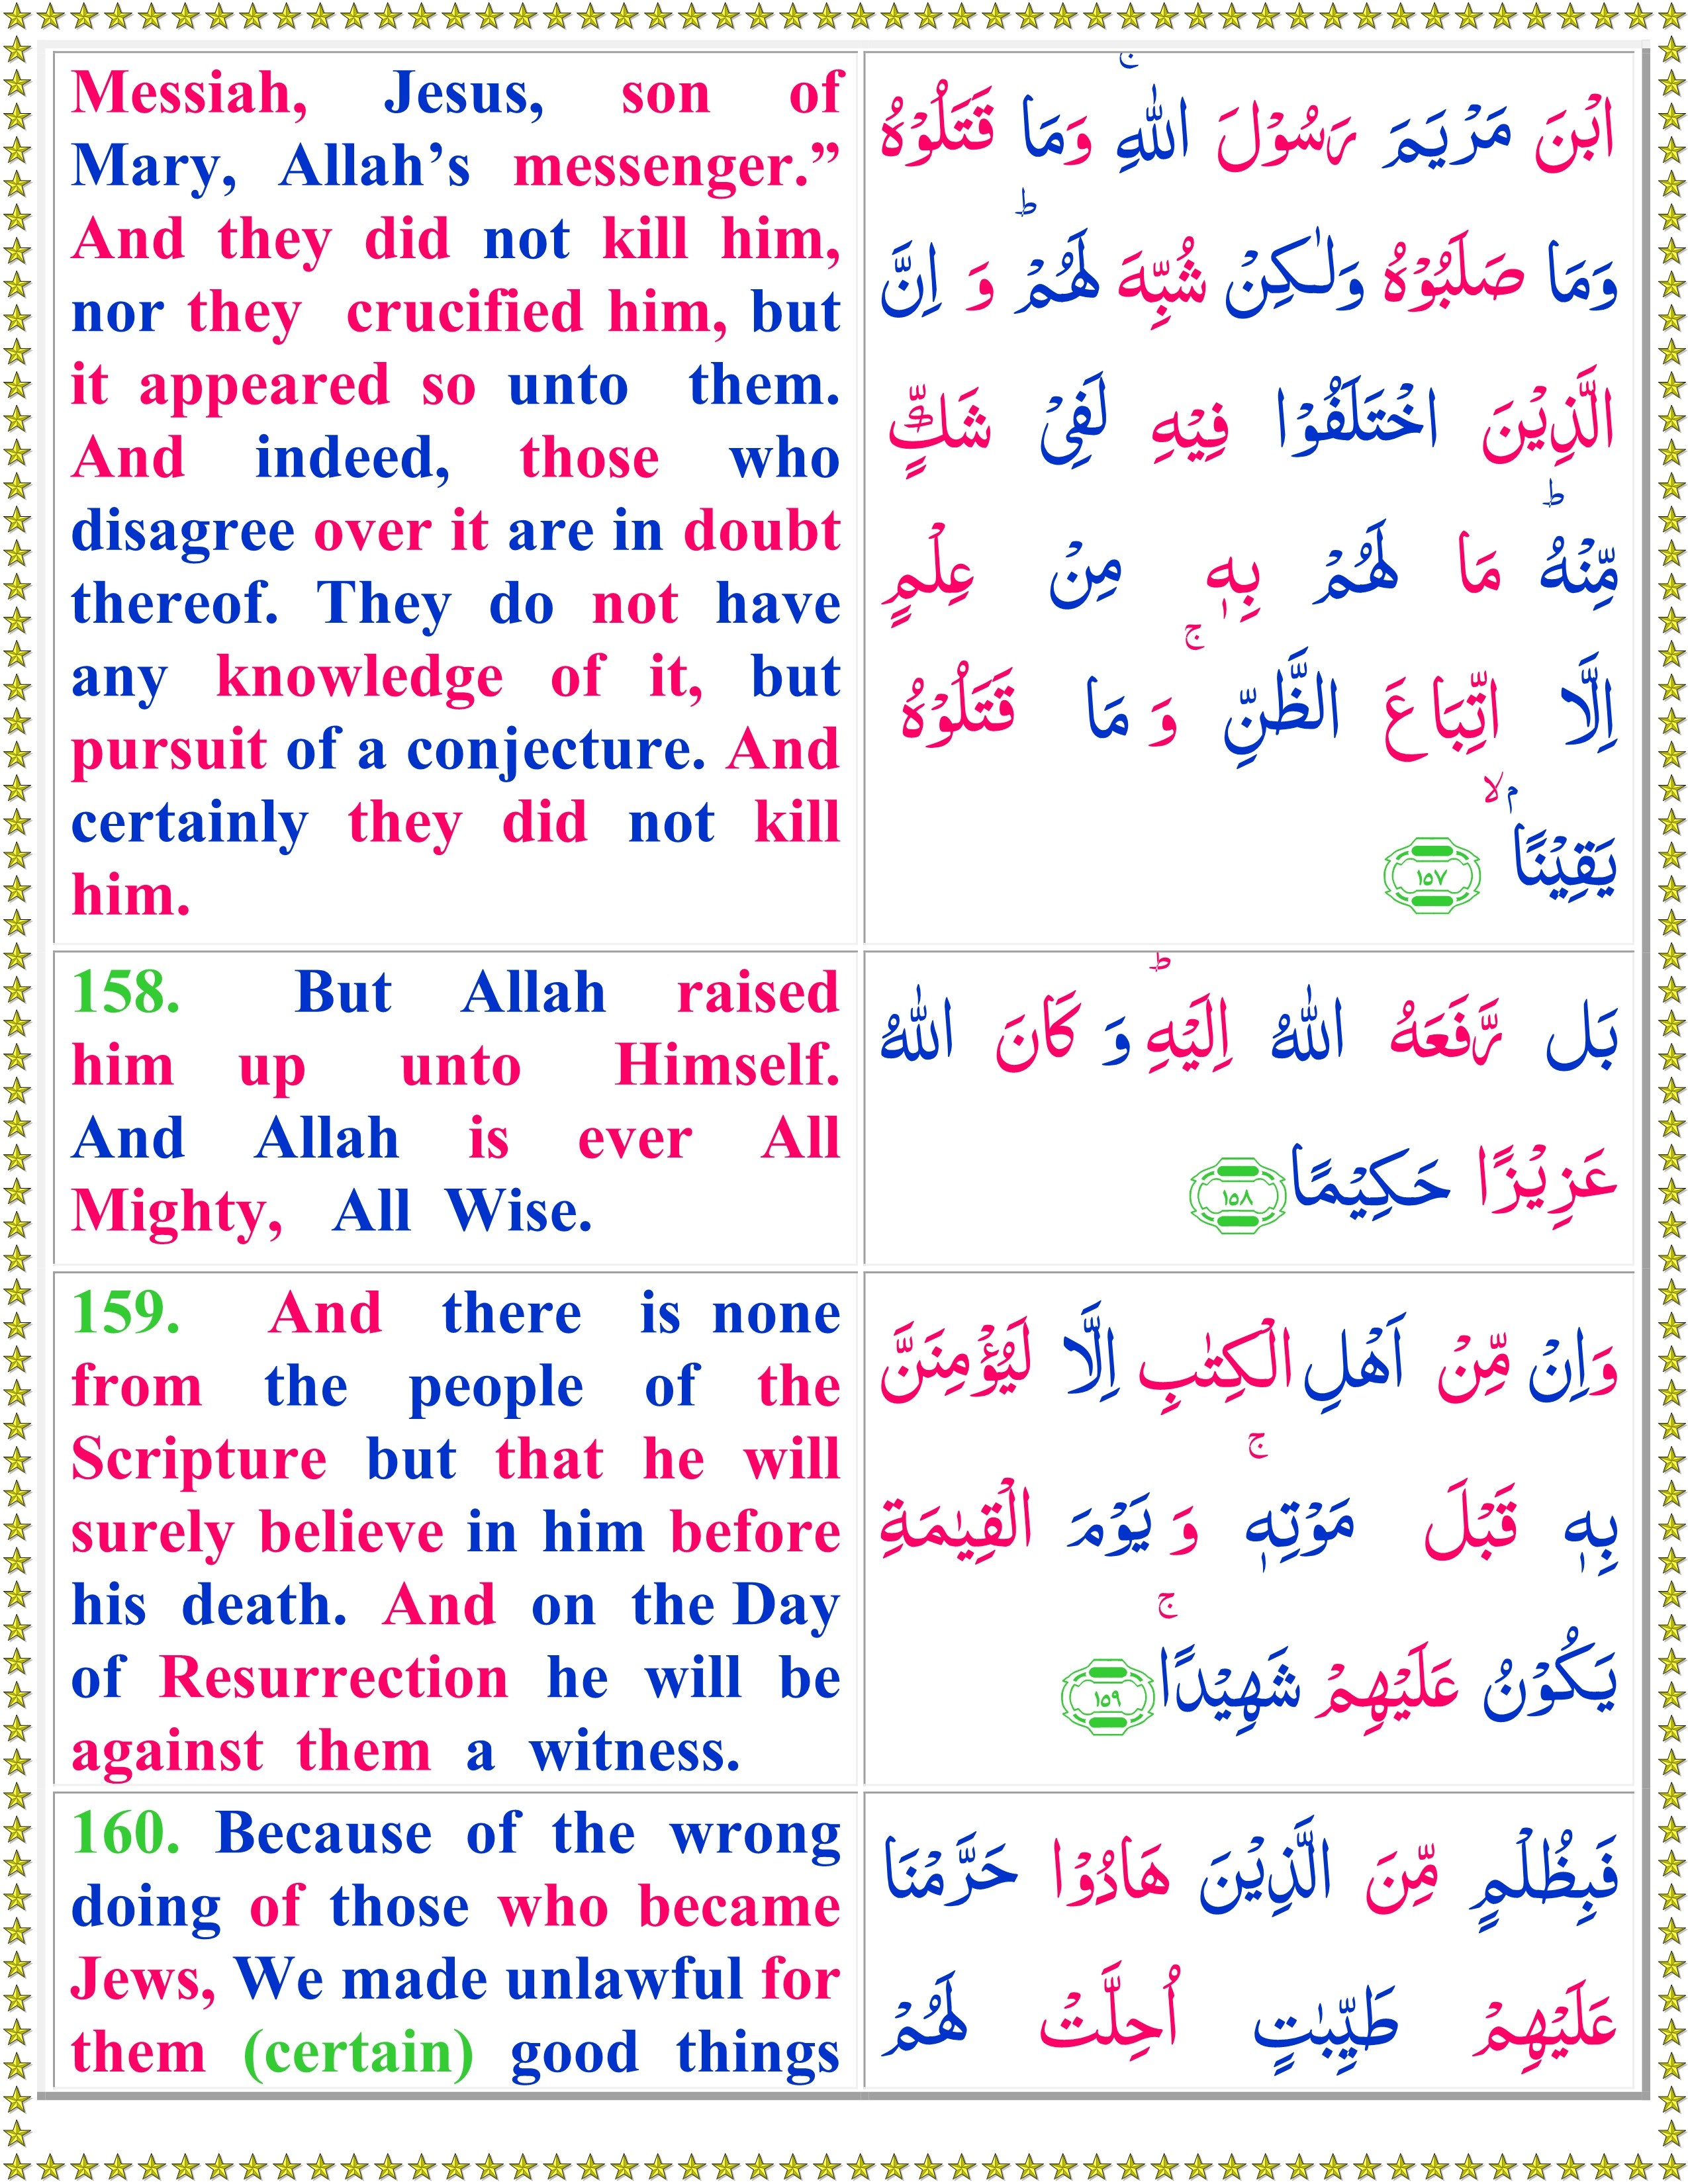 Messiah, Jesus, son of
Mary, Allah’s messenger.”
And they did not kill him,
nor they crucified him, but
it appeared so unto them.
And indeed, those who
disagree over it are in doubt
thereof. They do not have
any knowledge of it, but
pursuit of a conjecture. And
certainly they did not kill
him.
ابْنَ مَرْيَمَ رَسُوْلَ اللّٰهِ ۚ وَمَا قَتَلُوْهُ
وَمَا صَلَبُوْهُ وَلٰـكِنْ شُبِّهَ لَهُمْ ؕ وَ اِنَّ
الَّذِيْنَ اخْتَلَفُوْا فِيْهِ لَفِىْ شَكٍّ
مِّنْهُ ؕ مَا لَهُمْ بِهٖ مِنْ عِلْمٍ
اِلَّا اتِّبَاعَ الظَّنِّ ۚ وَ مَا قَتَلُوْهُ
يَقِيْنًا ۢ ۙ ‏١٥٧
158. But Allah raised
him up unto Himself.
And Allah is ever All
Mighty, All Wise.
بَل رَّفَعَهُ اللّٰهُ اِلَيْهِ ؕ وَ كَانَ اللّٰهُ
عَزِيْزًا حَكِيْمًا ١٥٨
159. And there is none
from the people of the
Scripture but that he will
surely believe in him before
his death. And on the Day
of Resurrection he will be
against them a witness.
وَاِنْ مِّنْ اَهْلِ الْكِتٰبِ اِلَّا لَيُؤْمِنَنَّ
بِهٖ قَبْلَ مَوْتِهٖ ۚ وَ يَوْمَ الْقِيٰمَةِ
يَكُوْنُ عَلَيْهِمْ شَهِيْدًا ۚ ١٥٩
160. Because of the wrong
doing of those who became
Jews, We made unlawful for
them (certain) good things
فَبِظُلْمٍ مِّنَ الَّذِيْنَ هَادُوْا حَرَّمْنَا
عَلَيْهِمْ طَيِّبٰتٍ اُحِلَّتْ لَهُمْ